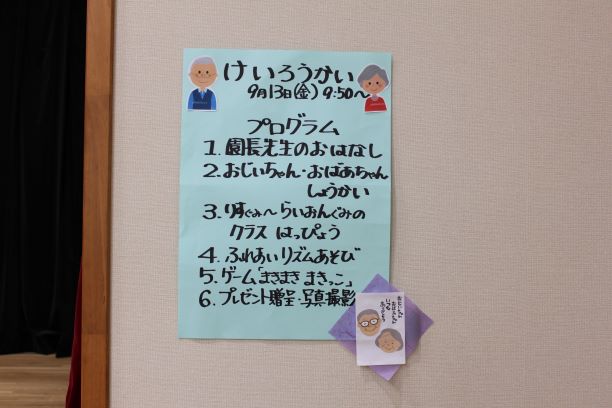 けいろうかい
9月13日(金) 9:50〜
プログラム
1. 園長先生のおはなし
2. おじいちゃん・おばあちゃん
しょうかい
3. りすぐみ〜らいおんぐみの
クラス はっぴょう
4. ふれあいリズムあそび
5. ゲーム「まきまき まきっこ」
6. プレゼント贈呈・写真撮影
おじいちゃん
おばあちゃん
いつも
ありがとう